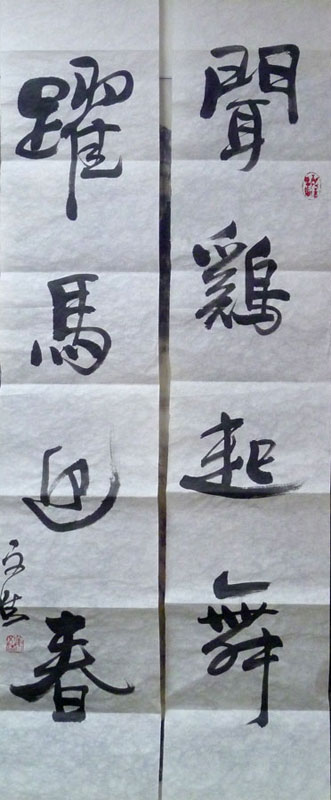 聞鷄起舞
躍馬迎春